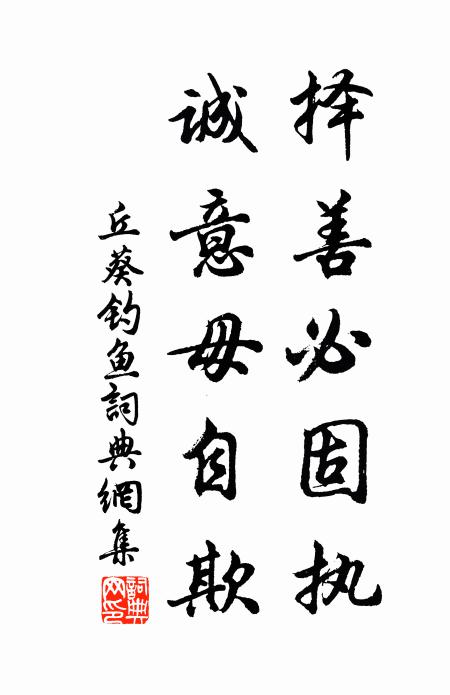 择善必固执
诚意毋自欺
丘葵钓鱼詞典網集
詞典網印